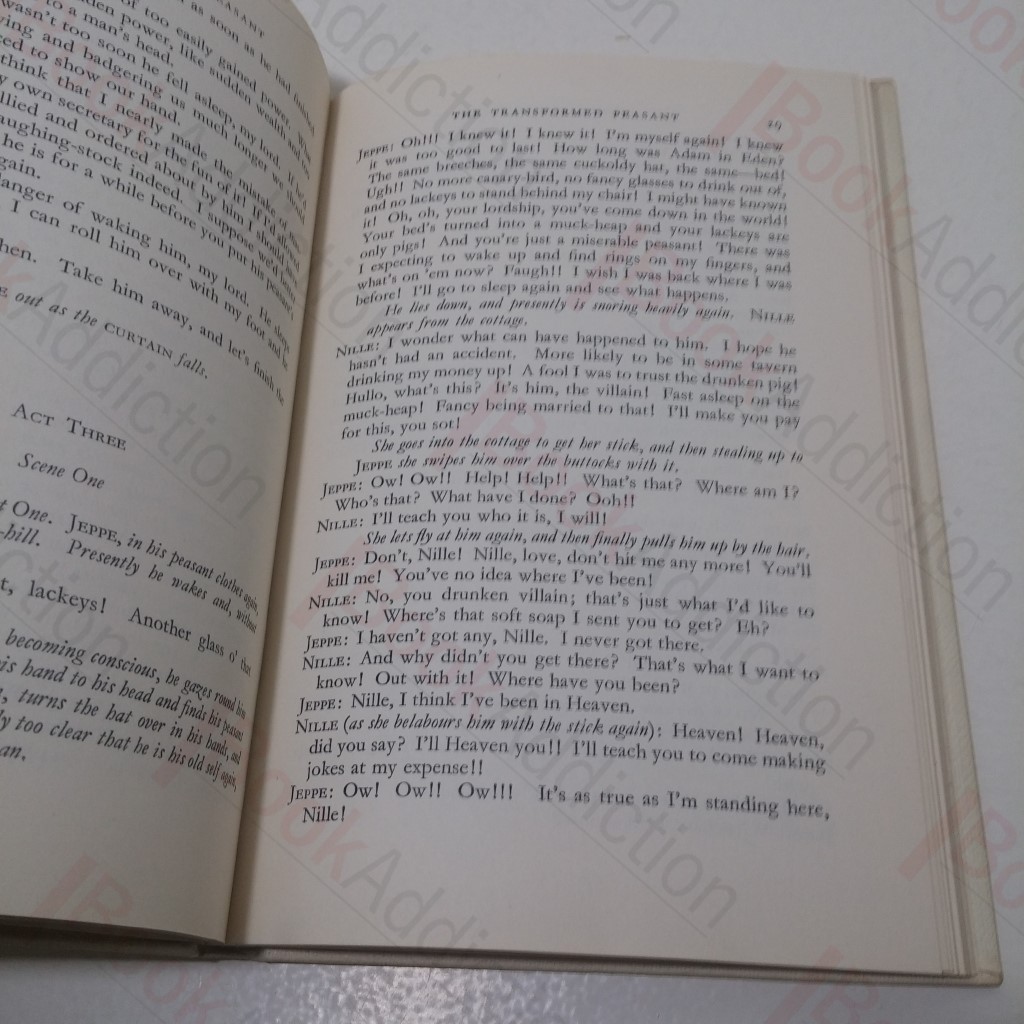 EASANT
as soon as he had
of too easily gained power.
den power, like sudden wealth
to a man's head.
wasn't too soon he fell asleep, my lord. If he'd
ing and badgering us much longer we should
ed to show our hand.
think that I nearly made the mistake of
own secretary for the fun of it! If I'd
llied and ordered about by him I should have
aughing-stock indeed. I suppose we'd better
he is for a while before you put his peasant
gain.
anger of waking him, my lord. He sleeps
I can roll him over with my foot and he
hen. Take him away, and let's finish the
out as the CURTAIN falls.
ACT THREE
Scene One
t One. JEPPE, in his peasant clothes again,
-hill. Presently he wakes and, without
t, lackeys! Another glass o' that
becoming conscious, he gazes round him
is hand to his head and finds his peasant
, turns the hat over in his hands, and
ly too clear that he is his old self again,
an.
THE TRANSFORMED PEASANT 29
JEPPE: Oh!!! I knew it! I knew it! I'm myself again! I knew
it was too good to last! How long was Adam in Eden?
The same breeches, the same cuckoldy hat, the same—bed!
Ugh!! No more canary-bird, no fancy glasses to drink out of,
and no lackeys to stand behind my chair! I might have known
it! Oh, oh, your lordship, you've come down in the world!
Your bed's turned into a muck-heap and your lackeys are
only pigs! And you're just a miserable peasant! There was
I expecting to wake up and find rings on my fingers, and
what's on 'em now? Faugh!! I wish I was back where I was
before! I'll go to sleep again and see what happens.
He lies down, and presently is snoring heavily again. NILLE
appears from the cottage.
NILLE: I wonder what can have happened to him. I hope he
hasn't had an accident. More likely to be in some tavern
drinking my money up! A fool I was to trust the drunken pig!
Hullo, what's this? It's him, the villain! Fast asleep on the
muck-heap! Fancy being married to that! I'll make you pay
for this, you sot!
She goes into the cottage to get her stick, and then stealing up to
JEPPE she swipes him over the buttocks with it.
JEPPE: Ow! Ow!! Help! Help!! What's that? Where am I?
Who's that? What have I done? Ooh!!
NILLE: I'll teach you who it is, I will!
She lets fly at him again, and then finally pulls him up by the hair.
JEPPE: Don't, Nille! Nille, love, don't hit me any more! You'll
kill me! You've no idea where I've been!
NILLE: No, you drunken villain; that's just what I'd like to
know! Where's that soft soap I sent you to get? Eh?
JEPPE: I haven't got any, Nille. I never got there.
NILLE: And why didn't you get there? That's what I want to
know! Out with it! Where have you been?
JEPPE: Nille, I think I've been in Heaven.
NILLE (as she belabours him with the stick again): Heaven! Heaven,
did you say? I'll Heaven you!! I'll teach you to come making
jokes at my expense!!
JEPPE: Ow! Ow!! Ow!!! It's as true as I'm standing here,
Nille!